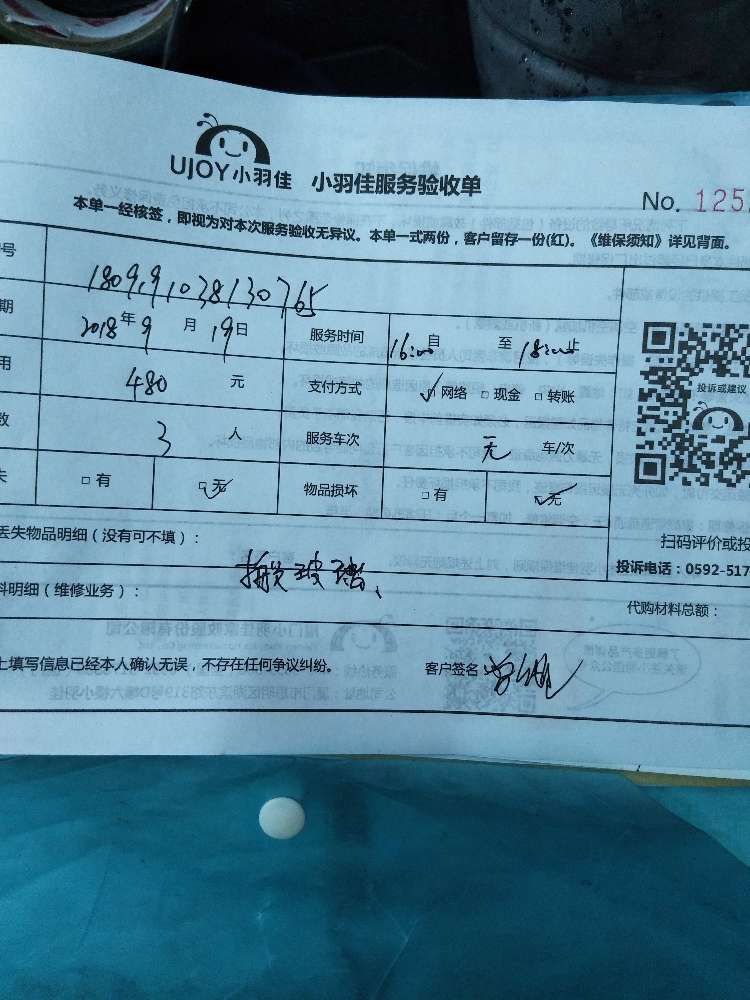 UJOY小羽佳 小羽佳服务验收单
No. 125
本单一经核签，即视为对本次服务验收无异议。本单一式两份，客户留存一份(红)。《维保须知》详见背面。
号 1809191038130765
期 2018年9月19日 服务时间 16:00自至18:00止
用 480元 支付方式 网络 现金 转账
投诉或建议
数 3人 服务车次 无 车/次
失 有 无 物品损坏 有 无
丢失物品明细（没有可不填）：
扫码评价或投
搬玻璃、
投诉电话：0592-517
料明细（维修业务）： 代购材料总额：
上填写信息已经本人确认无误，不存在任何争议纠纷。 客户签名